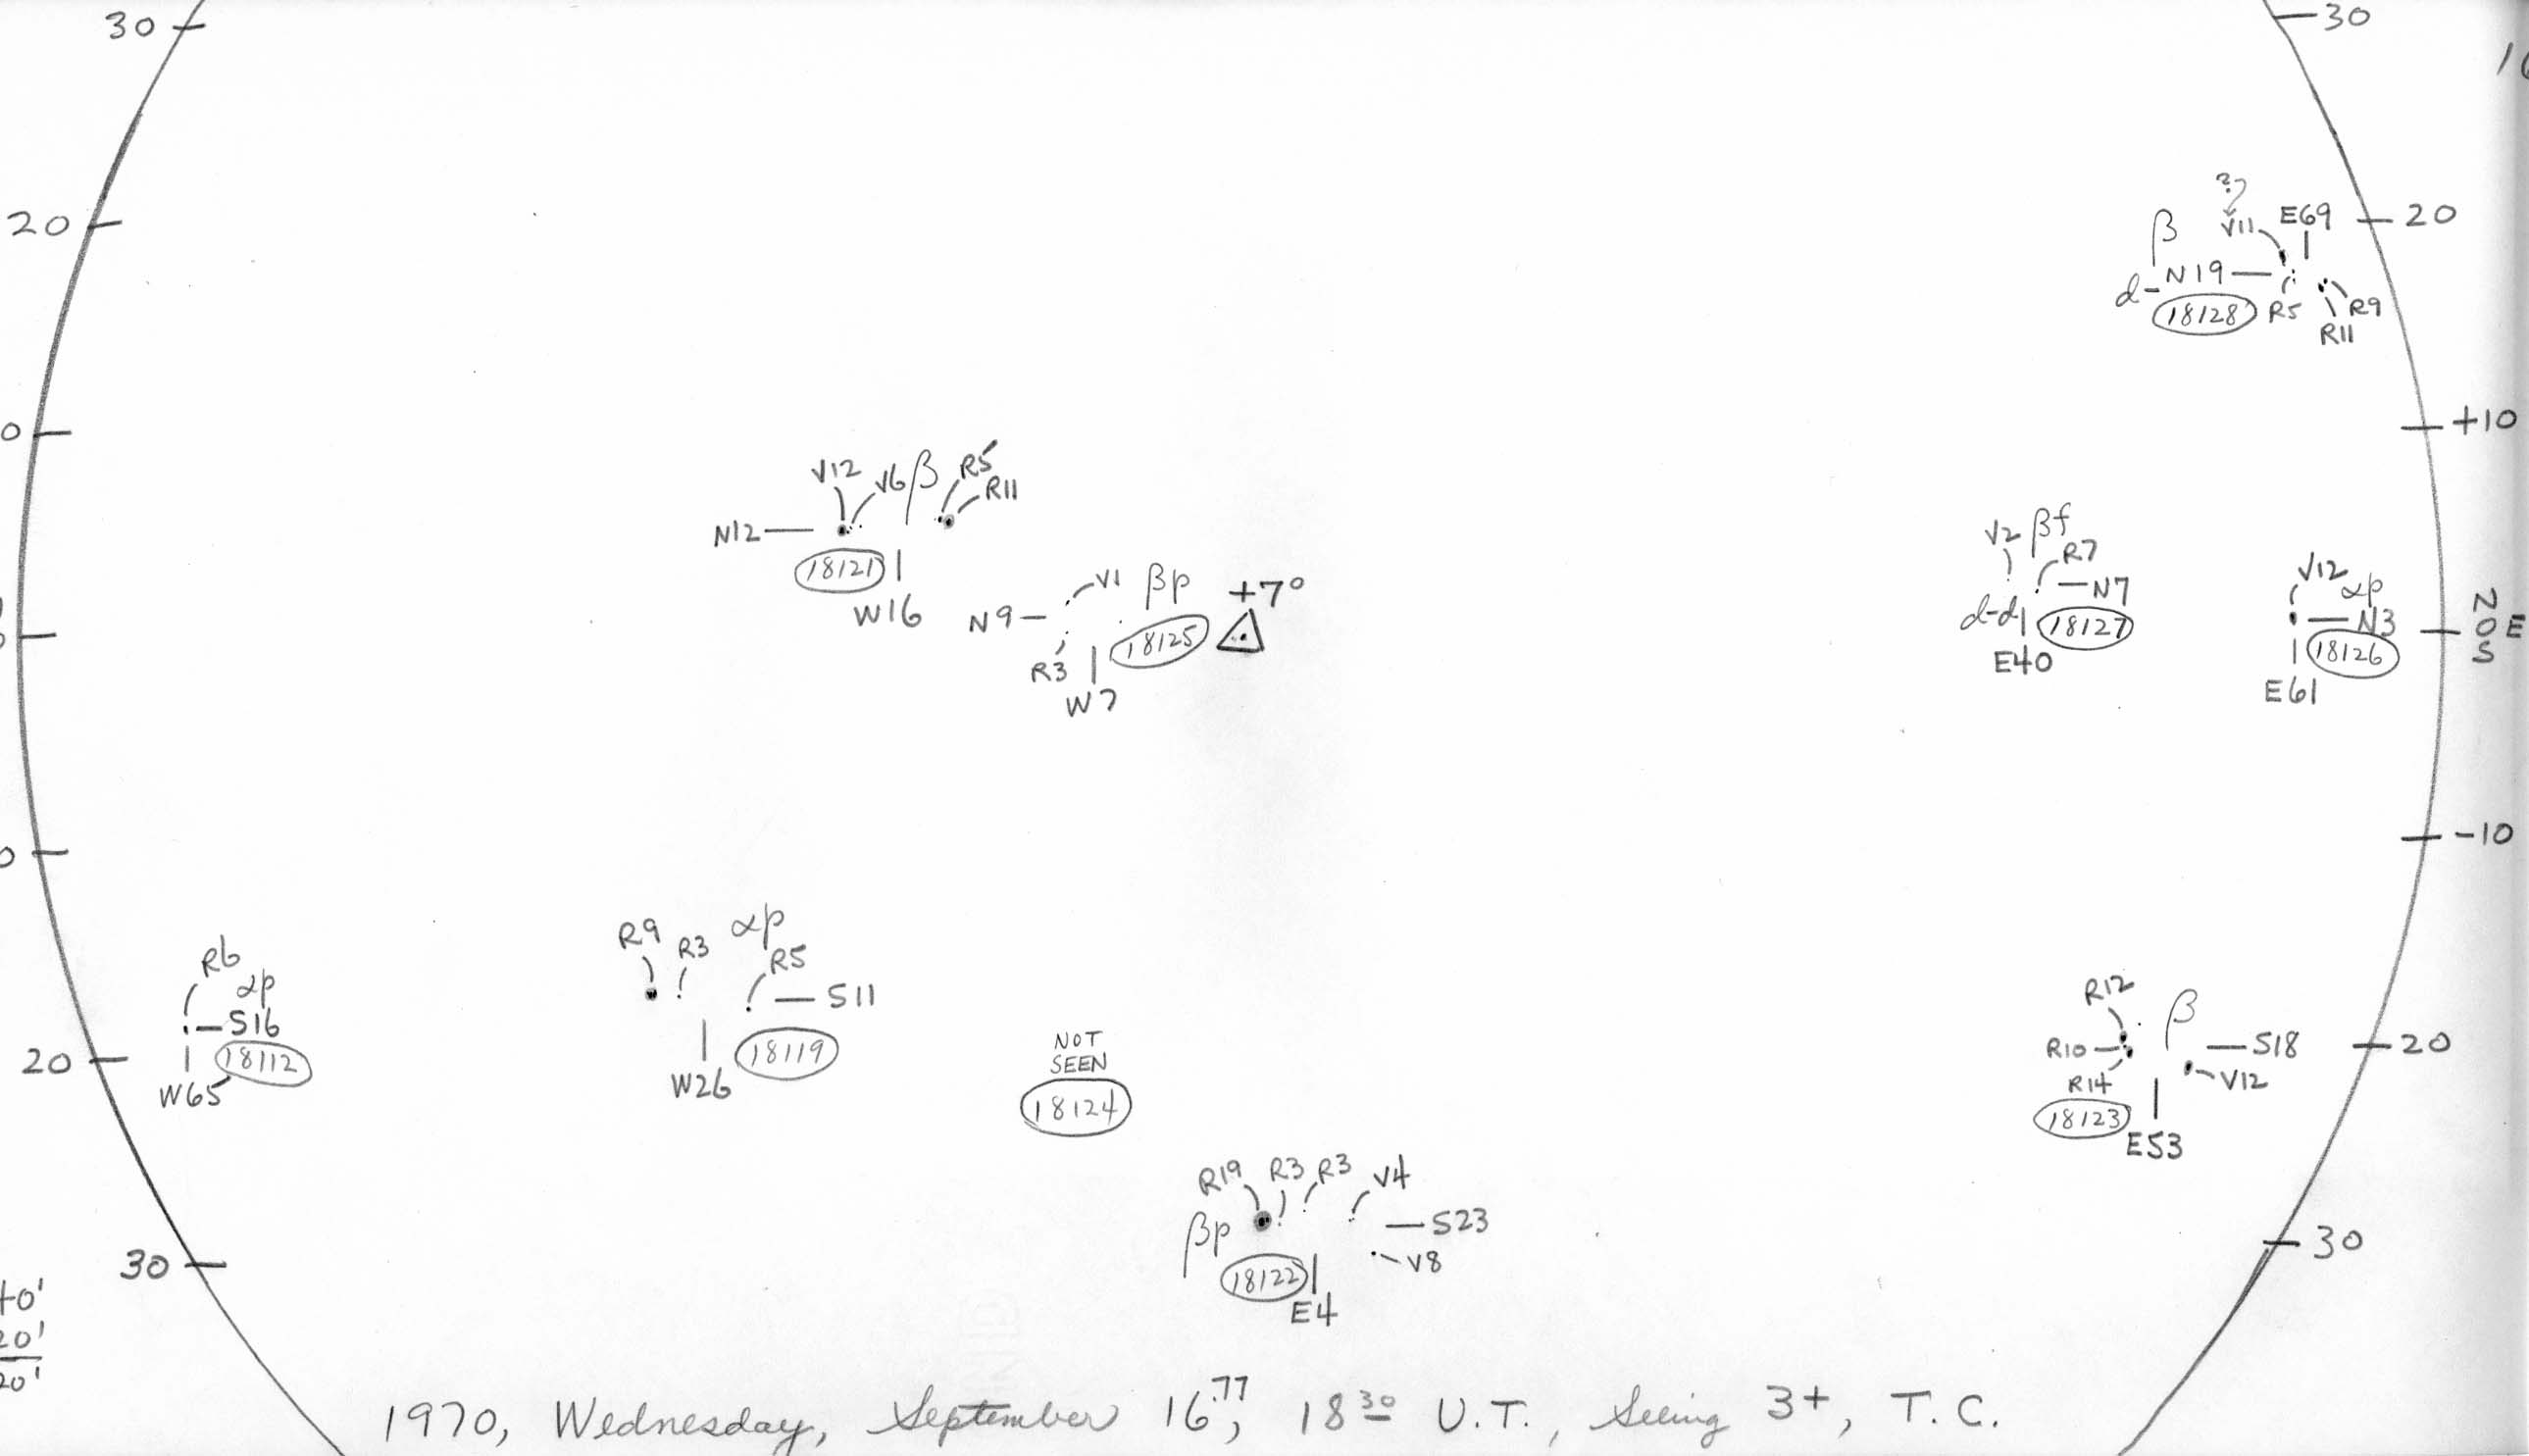 30
30
20
?
β V11 E69
20
d-N19
18128 R5 R9
R11
0
+10
V12 V6 β R5 R11
N12
18121
W16
V1 βp +7°
N9
18125
R3
W7
V2 βf
R7
N7
d-d 18127
E40
V12 αp
N3
18126
E61
N
0 E
S
0
-10
R6 αp
S16
18112
W65
20
R9 R3 αp
R5
S11
18119
W26
NOT
SEEN
18124
R12 β
R10 S18
R14 V12
18123
E53
20
R19 R3 R3 V4
βp S23
V8
18122
E4
30
30
40'
20'
20'
1970, Wednesday, September 16.77, 18 30 U.T., Seeing 3+, T.C.